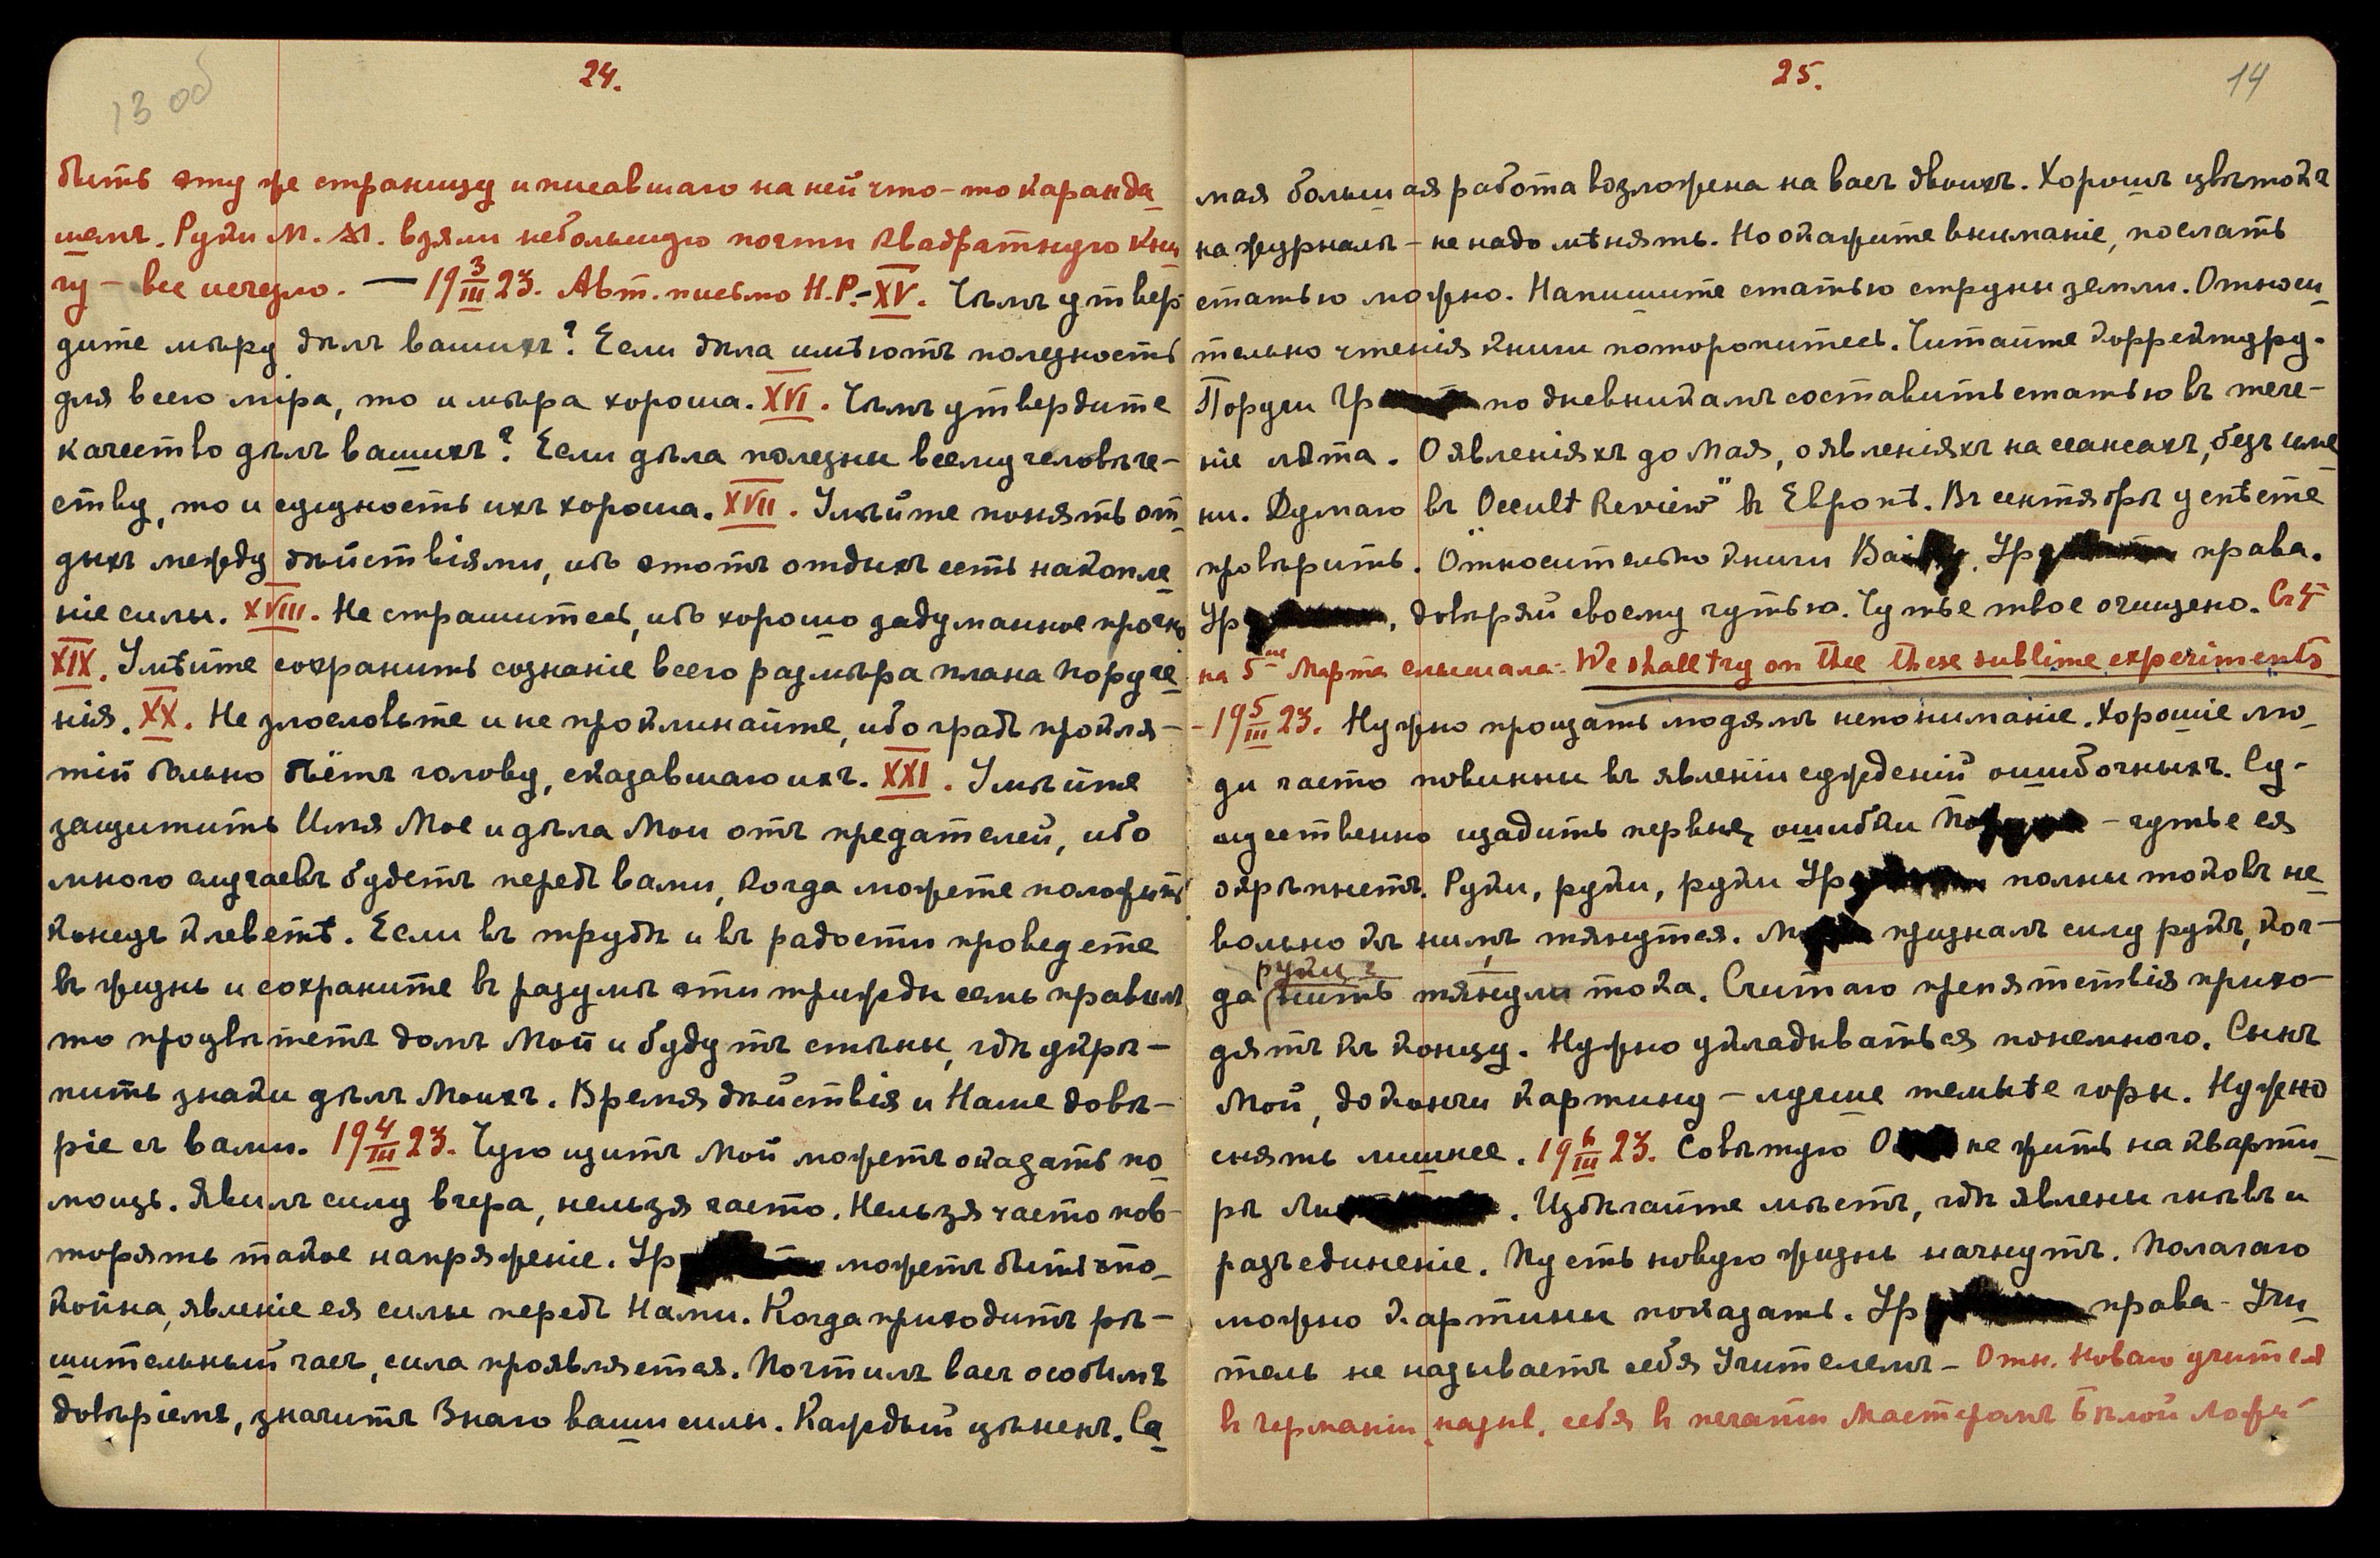 24.
13 об
быть эту же страницу и писавшаго на ней что-то каранда
шемъ. Руки М. М. взяли небольшую почти квадратную кни
гу – все исчезло. — 19 3/III 23. Авт. письмо Н.Р. – XV. Чѣмъ утвер
дите мѣру дѣлъ вашихъ? Если дѣла имѣютъ полезность
для всего мiра, то и мѣра хороша. XVI. Чѣмъ утвердите
качество дѣлъ вашихъ? Если дѣла полезны всему человѣче-
ству, то и сущность ихъ хороша. XVII. Умѣйте понять от
дыхъ между дѣйствiями, ибо этотъ отдыхъ есть накопле
нiе силы. XVIII. Не страшитесь, ибо хорошо задуманное прочно
XIX. Умѣйте сохранить сознанiе всего размѣра плана поруче
нiя. XX. Не злословьте и не проклинайте, ибо градъ прокля-
тiй больно бьётъ голову, сказавшаго ихъ. XXI. Умѣйте
защитить Имя Мое и дѣла Мои отъ предателей, ибо
много случаевъ будетъ передъ вами, когда можете положить
конецъ клеветѣ. Если въ трудѣ и въ радости проведете
въ жизнь и сохраните въ разумѣ эти трижды семь правилъ
то процвѣтетъ домъ Мой и будутъ стѣны, гдѣ укрѣ-
пить знаки дѣлъ Моихъ. Время дѣйствiя и Наше довѣ-
рiе съ вами. 19 4/III 23. Чую щитъ Мой можетъ оказать по
мощь. Явилъ силу вчера, нельзя часто. Нельзя часто пов-
торять такое напряженiе. Ур можетъ быть спо
койна, явленiе ея силы передъ Нами. Когда приходитъ рѣ-
шительный часъ, сила проявляется. Почтилъ васъ особымъ
довѣрiемъ, значитъ Знаю ваши силы. Каждый цѣненъ. Са
25.
14
мая большая работа возложена на васъ двоихъ. Хорошъ цвѣтокъ
на журналѣ – не надо мѣнять. Но окажите вниманiе, послать
статью можно. Напишите статью струны земли. Относи
тельно чтенiя книги поторопитесь. Читайте корректуру.
Поручи Ур по дневникамъ составить статью въ тече-
нiе лѣта. О явленiяхъ до Мая, о явленiяхъ на сеансахъ, безъ име
ни. Думаю въ "Occult Review" въ Европѣ. Въ сентябрѣ успѣете
провѣрить. Относительно книги Bai Ур права.
Ур, довѣряй своему чутью. Чутье твое очищено. Съ 4
на 5ое Марта слышала: We shall try on thee these sublime experiments
– 19 5/III 23. Нужно прощать людямъ непониманiе. Хорошiе лю
ди часто повинны въ явленiи сужденiй ошибочныхъ. Су-
щественно щадить первыя ошибки По – чутье ея
окрѣпнетъ. Руки, руки, руки Ур полны токовъ не
вольно къ нимъ тянутся. М призналъ силу рукъ, ког-
руки?
да (нить тянули тока. Считаю препятствiя прихо-
дятъ къ концу. Нужно укладываться понемного. Сынъ
Мой, докончи картину – лучше темнѣе горы. Нужно
снять лишнее. 19 6/III 23. Совѣтую О не жить на кварти
рѣ Ли. Избѣгайте мѣстъ, гдѣ явлены гнѣвъ и
разъединенiе. Пусть новую жизнь начнутъ. Полагаю
можно картины показать. Ур права – Учи
тель не называетъ себя Учителемъ – Отн. новаго учителя
въ Германiи, назыв. себя въ печати Мастеромъ Бѣлой Ложи